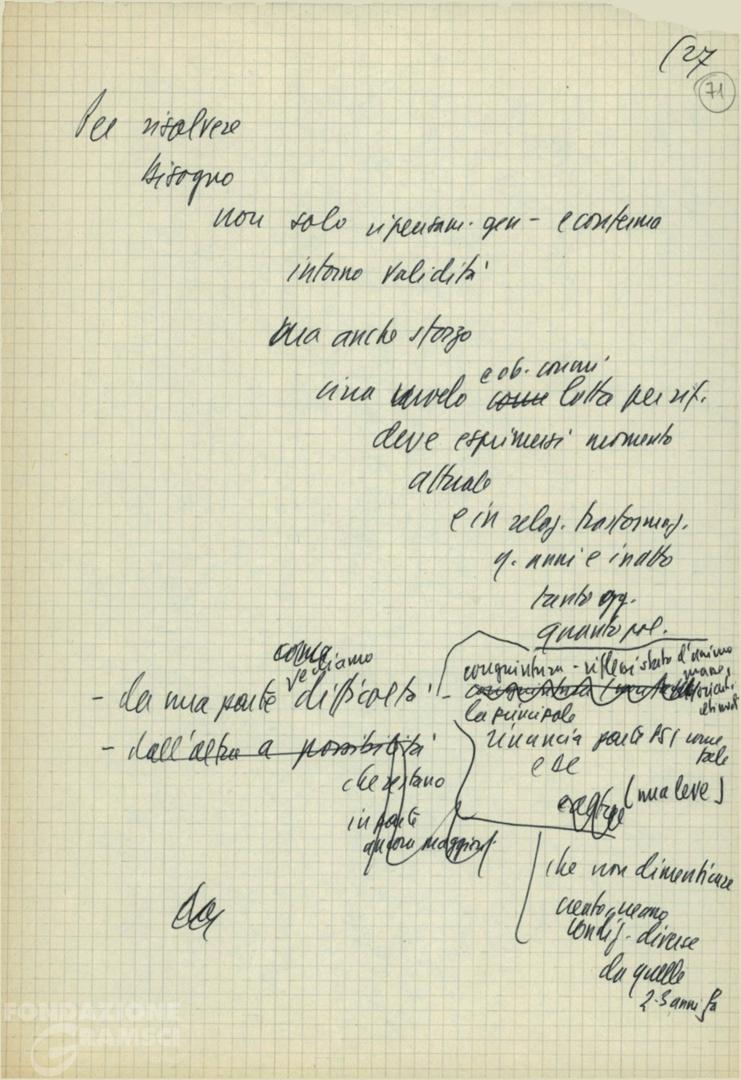 (27
71
Per risolvere
bisogno
non solo ripensam. gen - e conferma
intorno validità
ma anche sforzo
circa modo come lotta per rif.
e ob. comuni
deve esprimersi momento
attuale
e in relaz. trasformaz.
q. anni e in atto
tanto ogg.
quanto
come
vediamo
- da una parte difficoltà
- dall'altra a possibilità
che restano
in parte
ancora maggiori
congiuntura - riflessi stato d'animo
la principale
rinuncia parte PSI come
tale
e DC
(nua leve)
che non dimenticare
condiz. diverse
da quelle
2-3 anni fa
FONDAZIONE
GRAMSCI